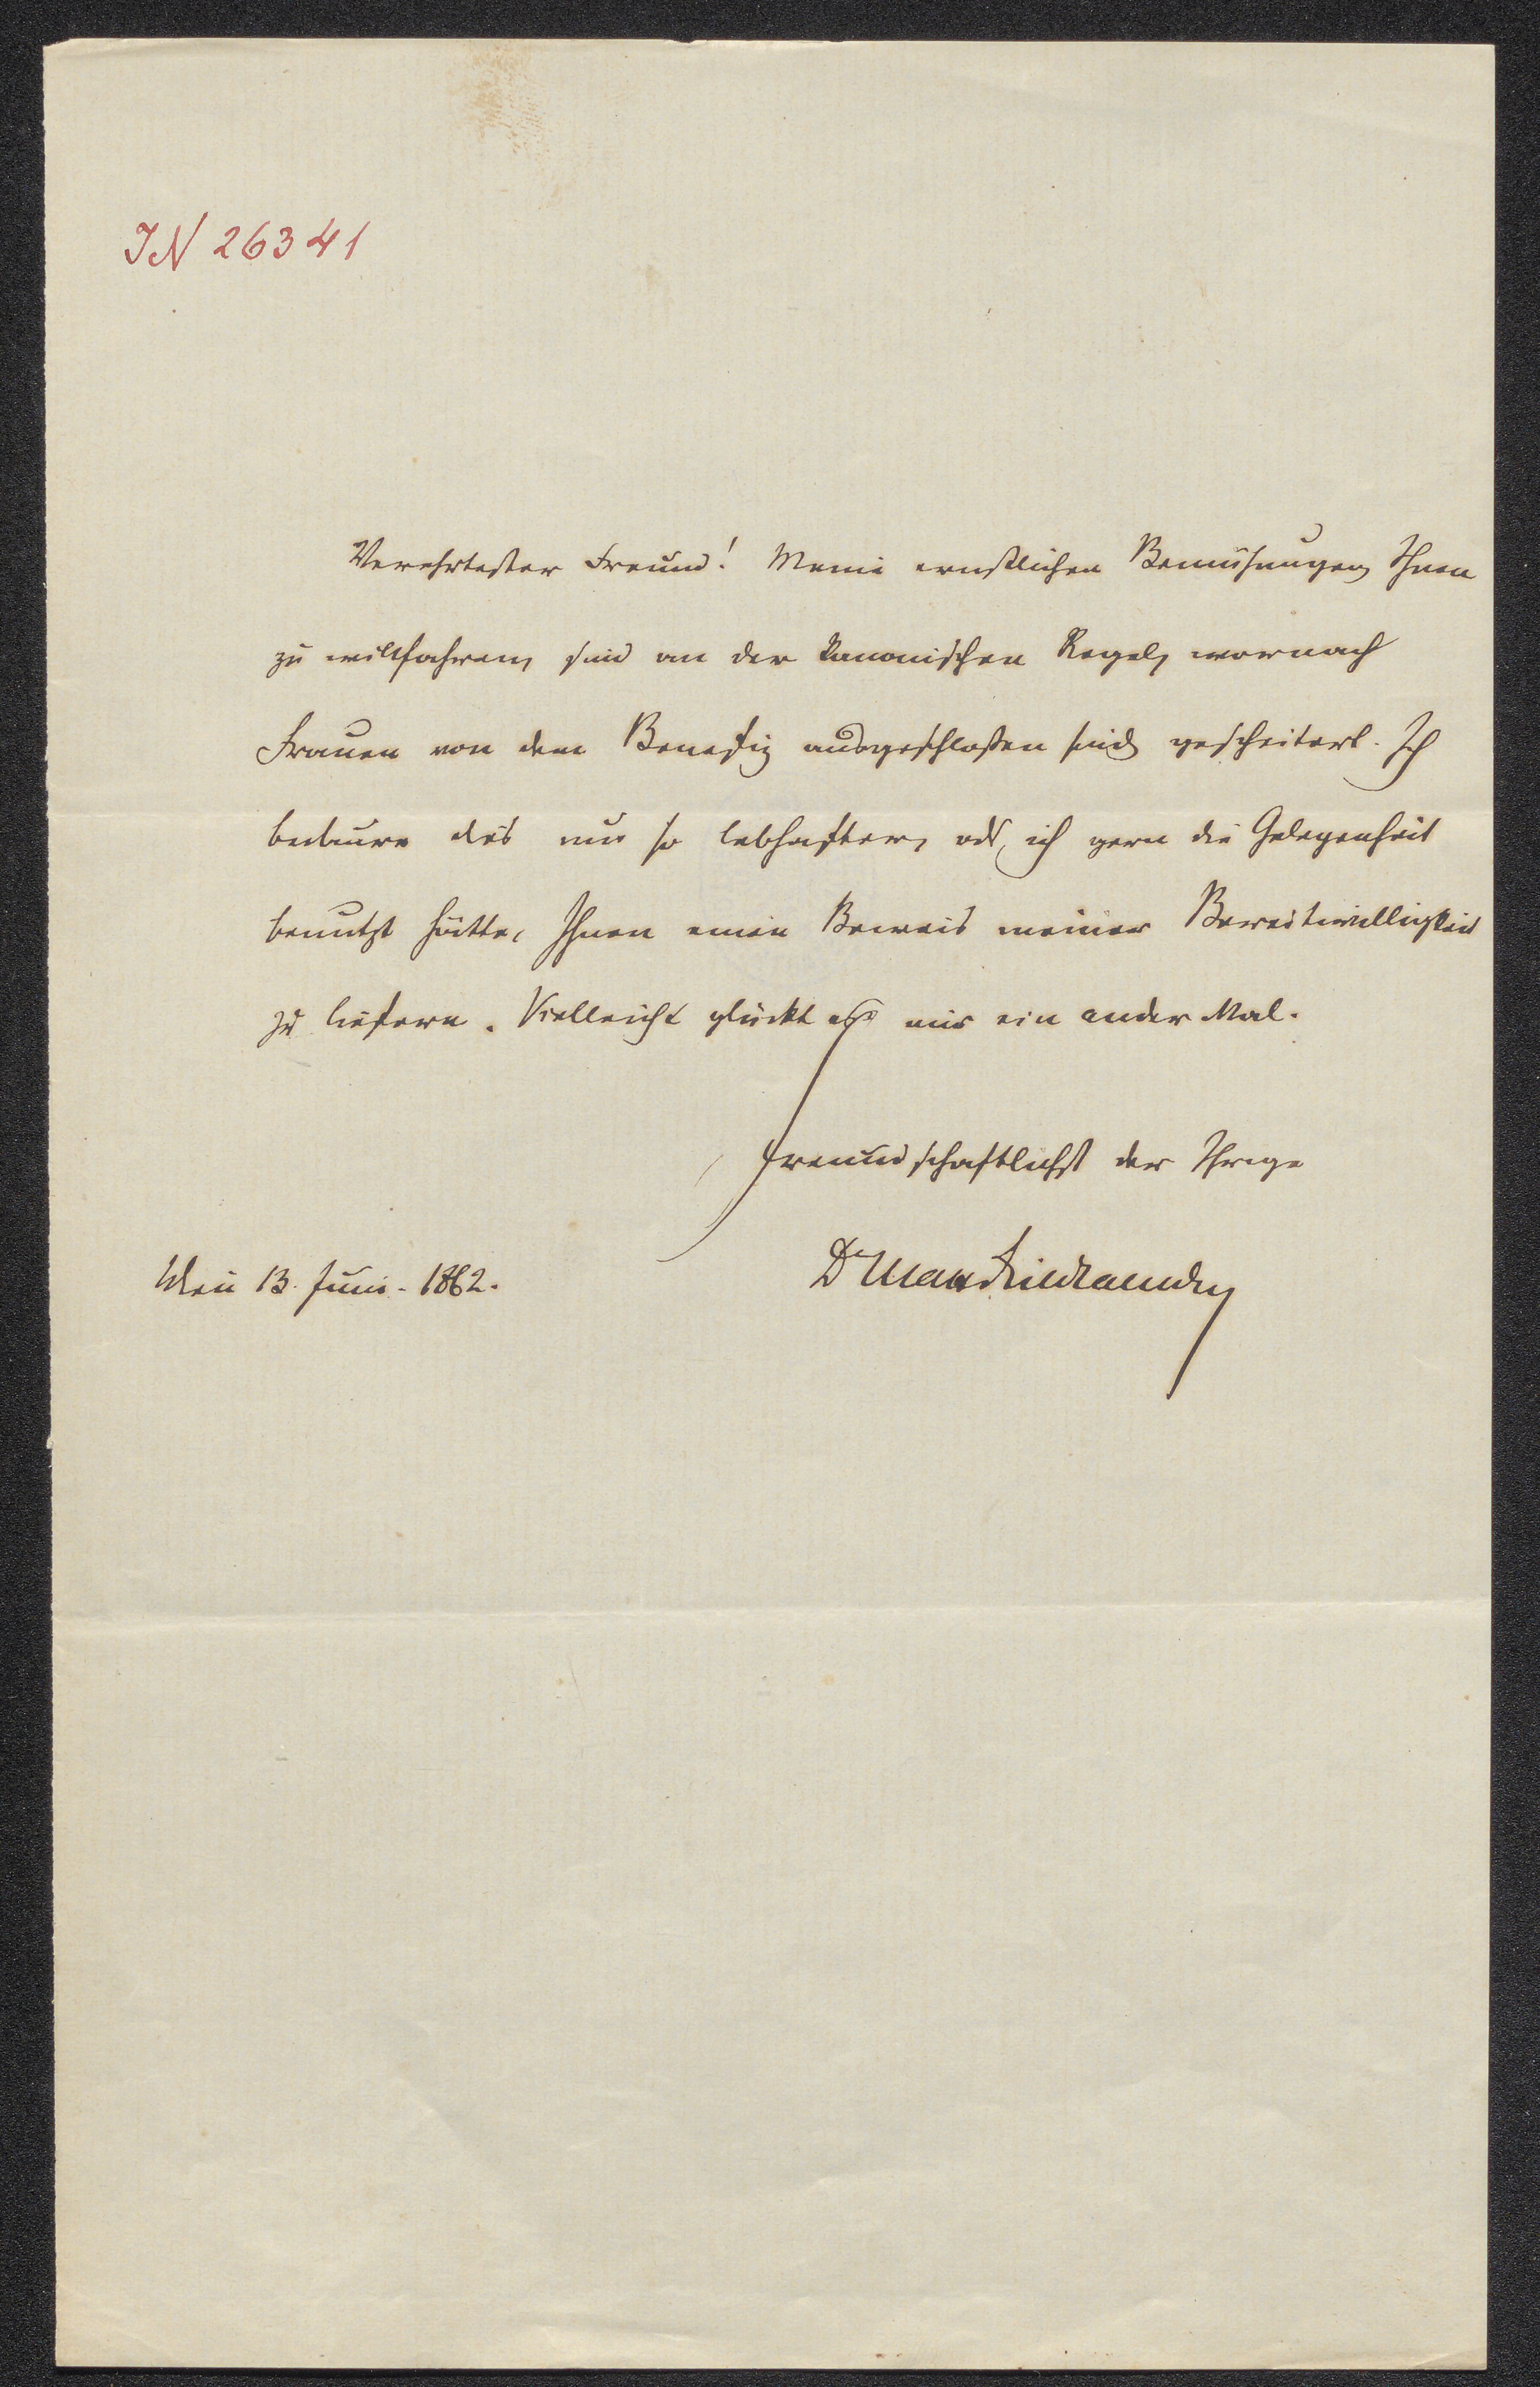 IN 26341
Verehrtester Freund! Meine ernstlichen Bemühungen, Ihnen
zu willfahren, sind an der kanonischen Regel, wornach
Frauen von dem Benefiz ausgeschloßen sind, gescheitert. Ich
bedaure dies um so lebhafter, als ich gern die Gelegenheit
benutzt hätte, Ihnen einen Beweis meiner Bereitwilligkeit
zu liefern. Vielleicht glückt es mir ein ander Mal.
Freundschaftlichst der Ihrige
Wien 13. Juni. 1862.
Dr Max Friedlaender